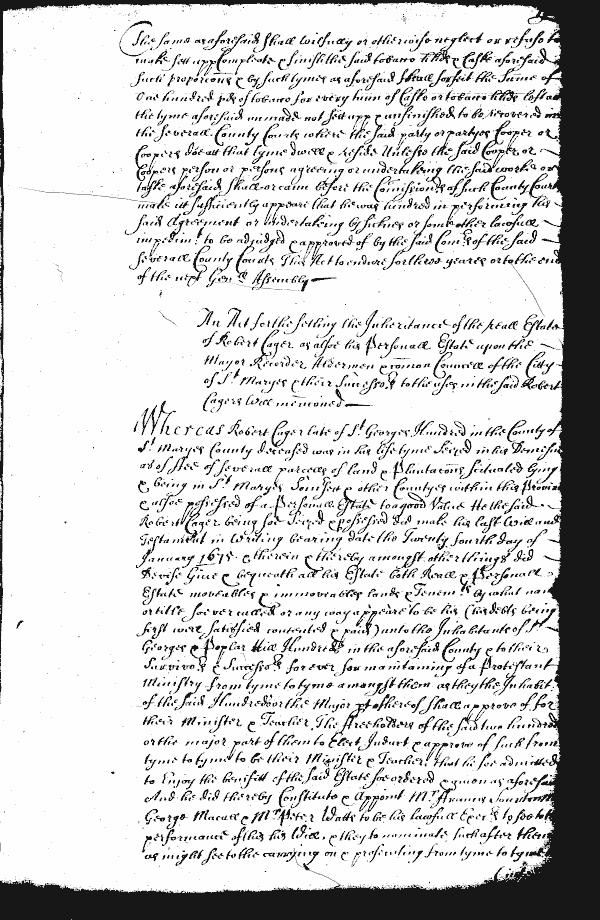 The same as aforesaid shall wilfully or otherwise neglect or refuse to
make sett upp Compleate & finish the said tobacco hhds & Caske aforesaid
such proporcons & by such tymes as aforesaid shall forfeit the Sume of
One hundred pds of tobacco for every tunn of Caske or tobacco hhds
the tyme aforesaid unmade not sett upp & unfinished to be recovered in
the severall County Courts where the said party or partyes Cooper or
Coopers doe att that tyme dwell & reside Unless the said Cooper or
Coopers person or persons agreeing or undertaking the said worke or
taske aforesaid shall or cann before the Comissioners of such County Court
make itt sufficiently appeare that he was hindred in performing his
said Agreement or undertaking by sicknes or some other lawfull
impedimt. to be adjudged & approved of by the said Comrs of the said
severall County Courts This Act to endure for three yeares or to the end
of the next Genll Assembly
An Act for the setling the Inheritance of the reall Estate
of Robert Cager as alsoe his Personall Estate upon the
Mayor Recorder Aldermen & comon Councell of the Citty
of St. Maryes & their Successors to the uses in the said Robert
Cagers Will mencioned
Whereas Robert Cager late of St. Georges Hundred in the County of
St. Maryes County deceased was in his life tyme Seized in his Demesne
as of ffee of severall parcells of land & Plantacons Scituated lying
& being in St. Maryes & other Countyes within this Province
& alsoe possessed of a Personall Estate to a good Value He the said
Robert Cager being soe Seized & possessed did make his last Will and
Testament in Writing bearing date the Twenty fourth day of
January 1675 & therein & thereby amongst other things did
Devise Give & bequeath all his Estate both Reall & Personall
Estate moveables & immoveables lands & Tenemts by what name
or title soever called or any way appeare to be his (his debts being
first well satisfied contented & paid) unto the Inhabitants of St.
Georges & Poplar Hill Hundreds in the aforesaid County & to their
Survivors & Successors for ever for maintaining of a Protestant
Ministry from tyme to tyme amongst them as they the Inhabit.
of the said Hundreds or the Major pt thereof shall approve of for
their Minister & Teacher The ffreeholders of the said two hundred
or the major part of them to Elect Induct & approve of such from
tyme to tyme to be their Minister & Teacher, that he soe admitted
to Enjoy the benifitt of the said Estate soe ordered & given as aforesaid
And he did thereby Constitute & Appoint Mr. Francis
George Macall & Mr. Peter Watts to be his lawfull Execrs to see to the
performance of this his Will, & they to nominate such after them
as might see to the carrying on & prosecuting from tyme to tyme